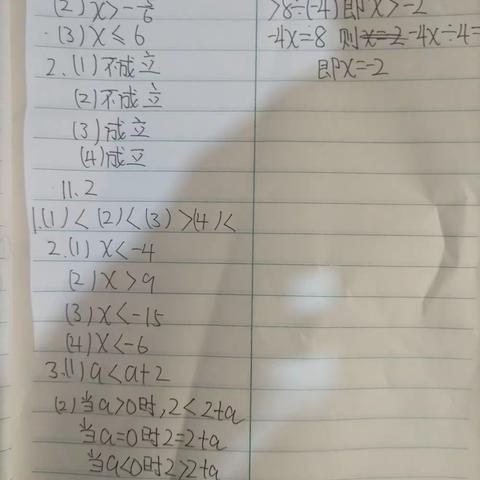 (2) x>-5/6
(3) x≤6
2.(1)不成立
(2)不成立
(3)成立
(4)成立
11.2
1.(1)<(2)<(3)>(4)<
2.(1) x<-4
(2) x>9
(3) x<-15
(4) x<-6
3.(1) a<a+2
(2)当a>0时,2<2+a
当a=0时2=2+a
当a<0时2>2+a
>8÷(-4)即x>-2
-4x=8 则x=2-4x÷4=
即x=-2